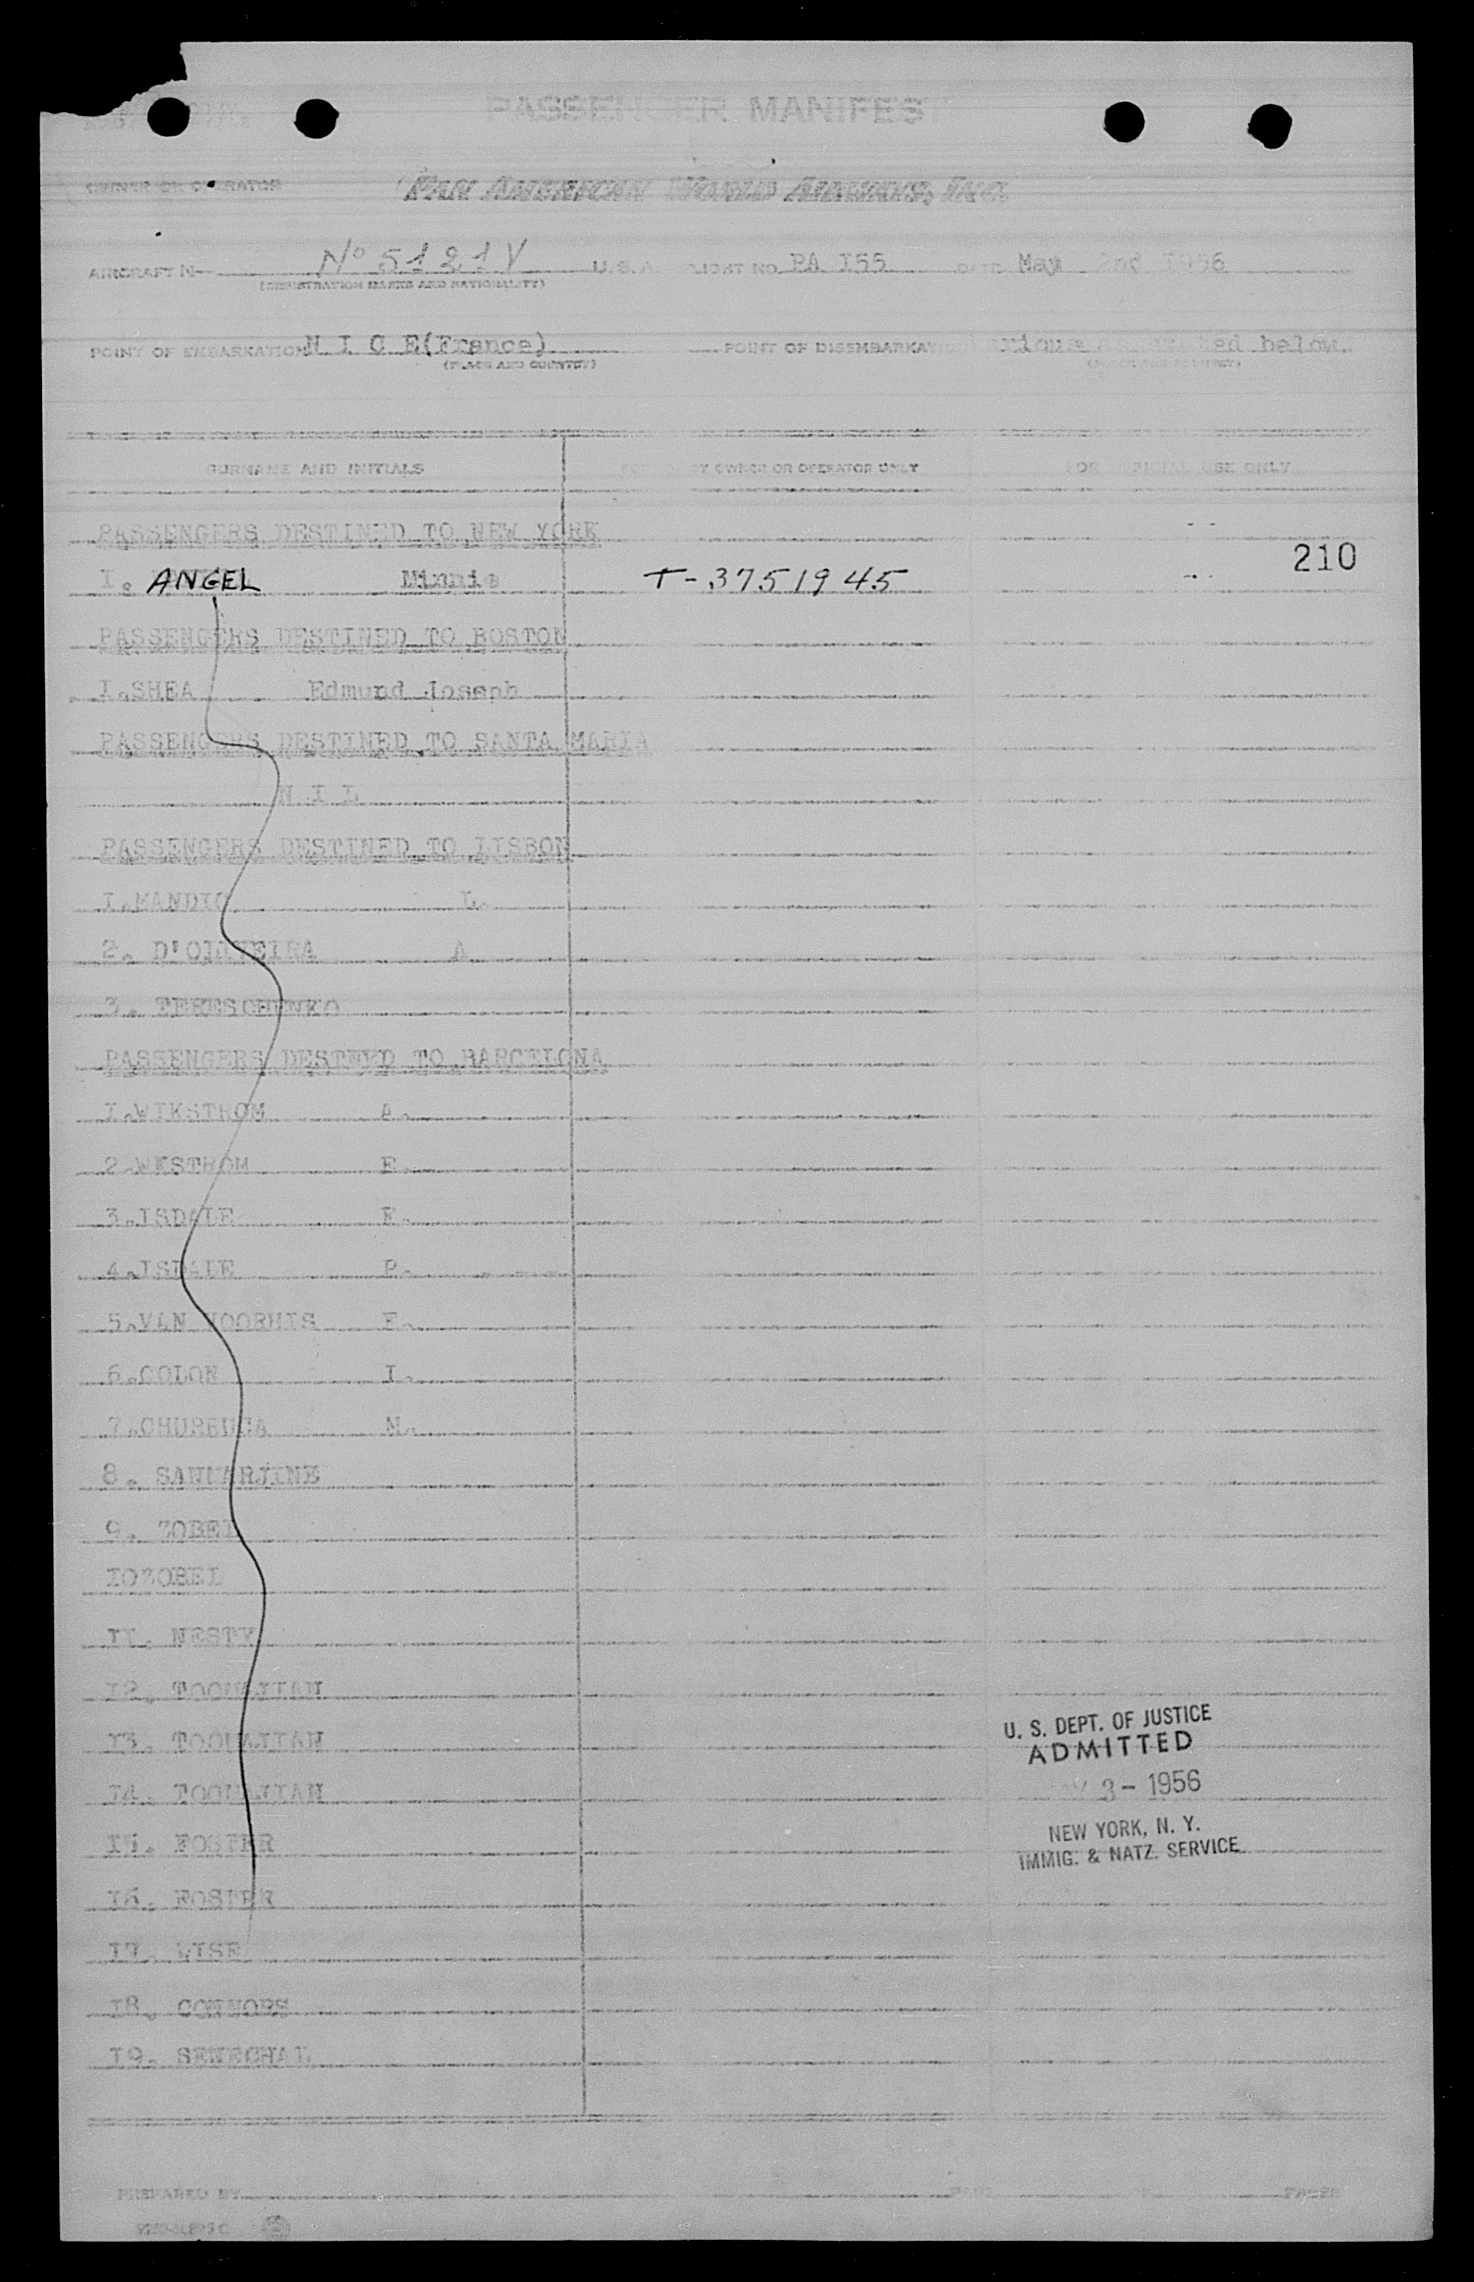 PASSENGER MANIFES
OWNER OR OPERATOR PAN AMERICAN WORLD AIRWAYS, INC.
AIRCRAFT N- No 5121V U.S.A. FLIGHT NO. PA I55 DATE May 2nd 1956
(REGISTRATION MARKS AND NATIONALITY)
POINT OF EMBARKATION N I C E(France) POINT OF DISEMBARKATION below.
(PLACE AND COUNTRY) (PLACE AND COUNTRY)
SURNAME AND INITIALS BY OWNER OR OPERATOR ONLY FOR OFFICIAL USE ONLY
PASSENGERS DESTINED TO NEW YORK
I. ANGEL Minnie T-3751945 210
PASSENGERS DESTINED TO BOSTON
I.SHEA Edmund Joseph
PASSENGERS DESTINED TO SANTA MARIA
N I L
PASSENGERS DESTINED TO LISBON
I.MANDIC L.
2. D'OLIVEIRA A
3. TERESCHENKO
PASSENGERS DESTINED TO BARCELONA
I.WIKSTROM A.
2.WKSTROM E.
3.ISDALE F.
4.ISDALE P.
5.VAN VOORHIS F.
6.COLOE I.
7.CHURRUCA M.
8. SANMARJINE
9. ZOBEL
IOZOBEL
II. NESTY
I2. TOOUAJIAN
I3. TOOUAJIAN
I4. TOOUAJIAN
I5. FOSTER
I6. FOSTER
I7. WISE
I8. CONNORS
I9. SENECHAL
U. S. DEPT. OF JUSTICE
ADMITTED
3- 1956
NEW YORK, N. Y.
IMMIG. & NATZ. SERVICE
PREPARED BY PAGES